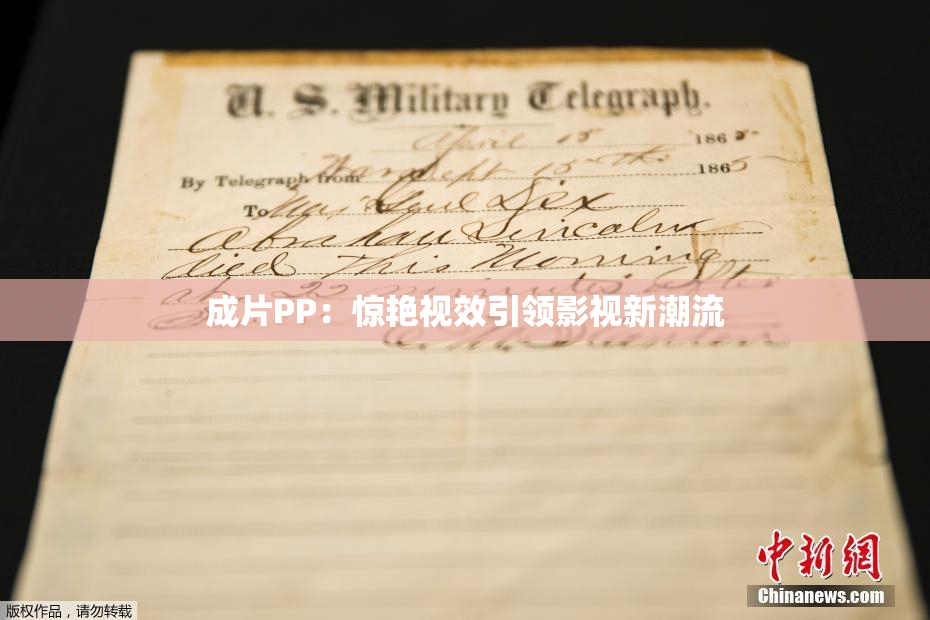 U. S. Military Telegraph.
April 15 1865
By Telegraph from War Dept 15th 1865
To Maj Genl Dix
Abraham Lincoln
died This Morning
at 22 minutes after
成片PP：惊艳视效引领影视新潮流
中新网
Chinanews.com
版权作品，请勿转载